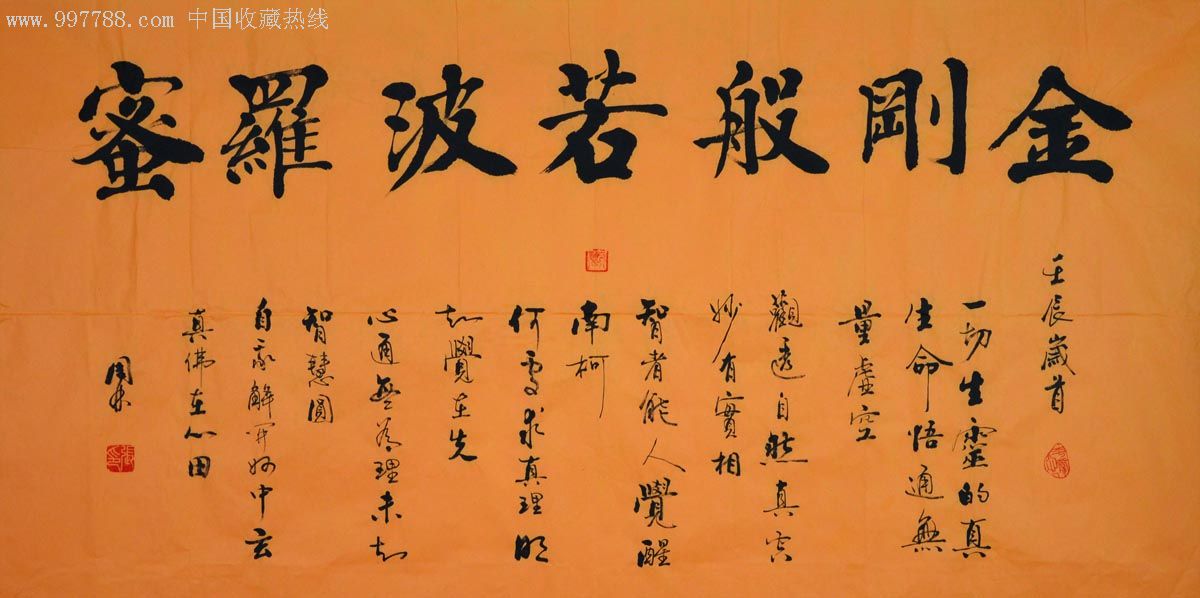 www.997788.com 中国收藏热线
金剛般若波羅蜜
壬辰歲首
一切生靈的真
生命悟通無
量虚空
觀透自然真空
妙有實相
智者能人覺醒
南柯
何處求真理明
知覺在先
心通無為理未知
智慧圓
自我解開妙中玄
真佛在心田